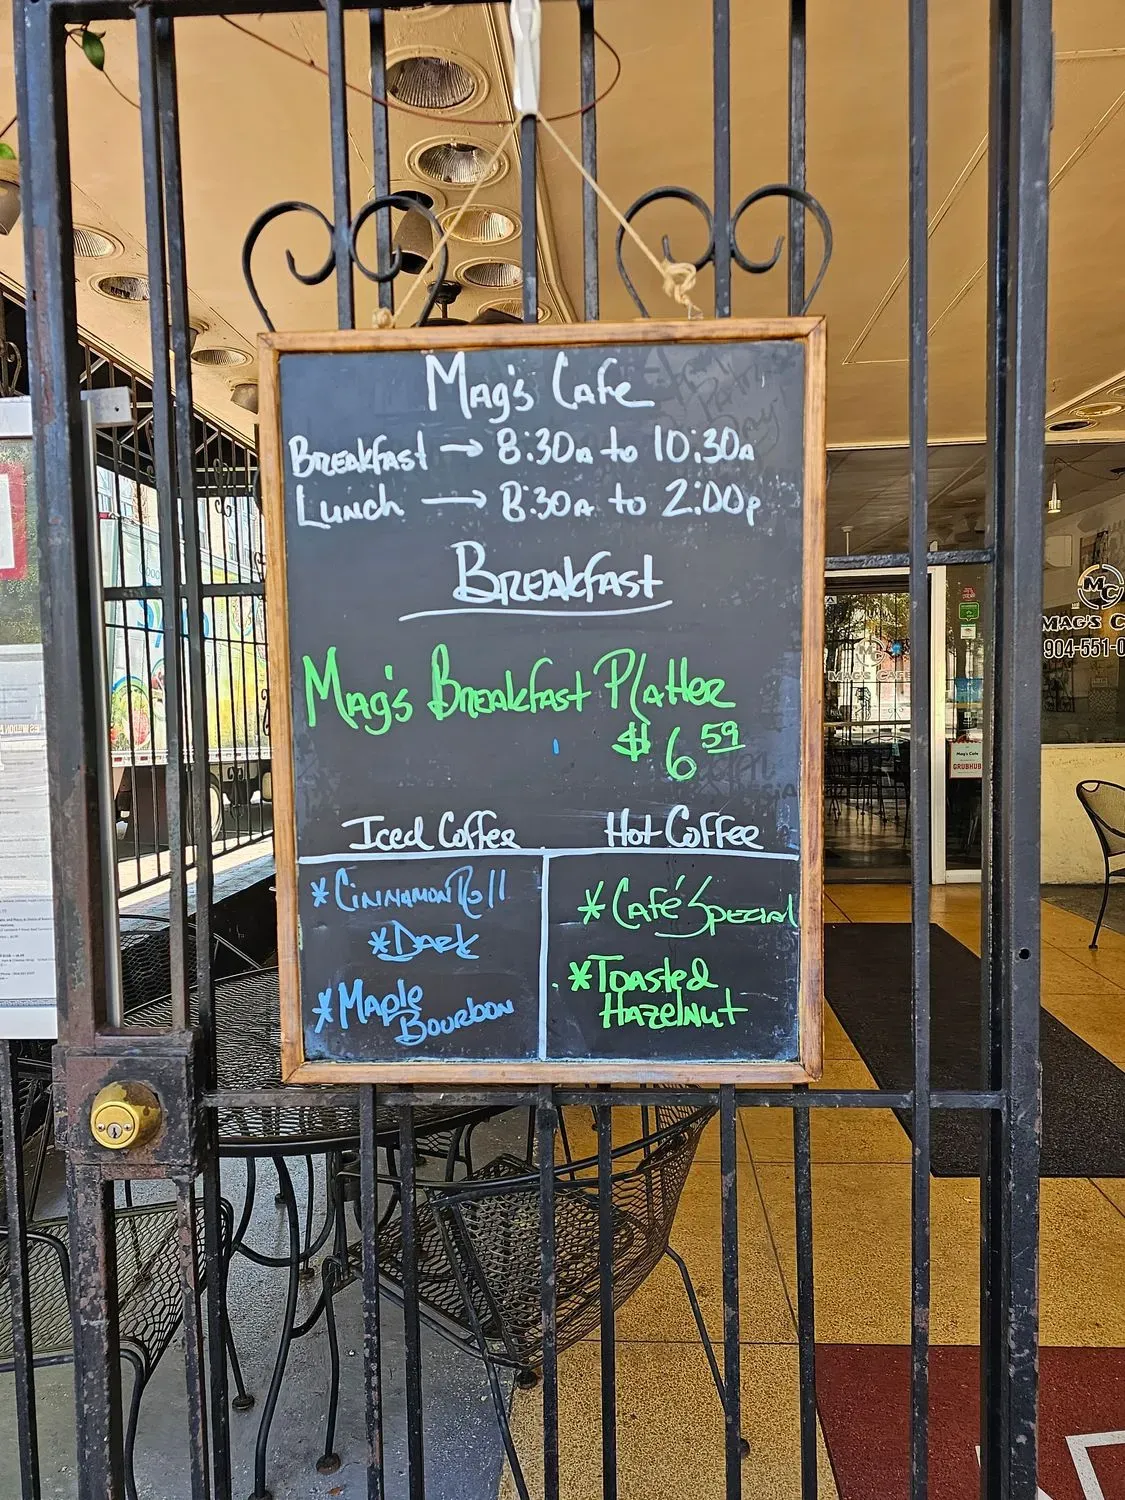 Mag's Cafe
Breakfast → 8:30a to 10:30a
Lunch → 8:30a to 2:00p
Breakfast
Mag's Breakfast Platter
$6 59
Iced Coffee
Hot Coffee
*Cinnamon Roll
*Dark
*Maple
Bourbon
*Café Special
*Toasted
Hazelnut
MC
MAG'S C
904-551-0
MAG'S CAFE
Mag's Cafe
GRUBHUB